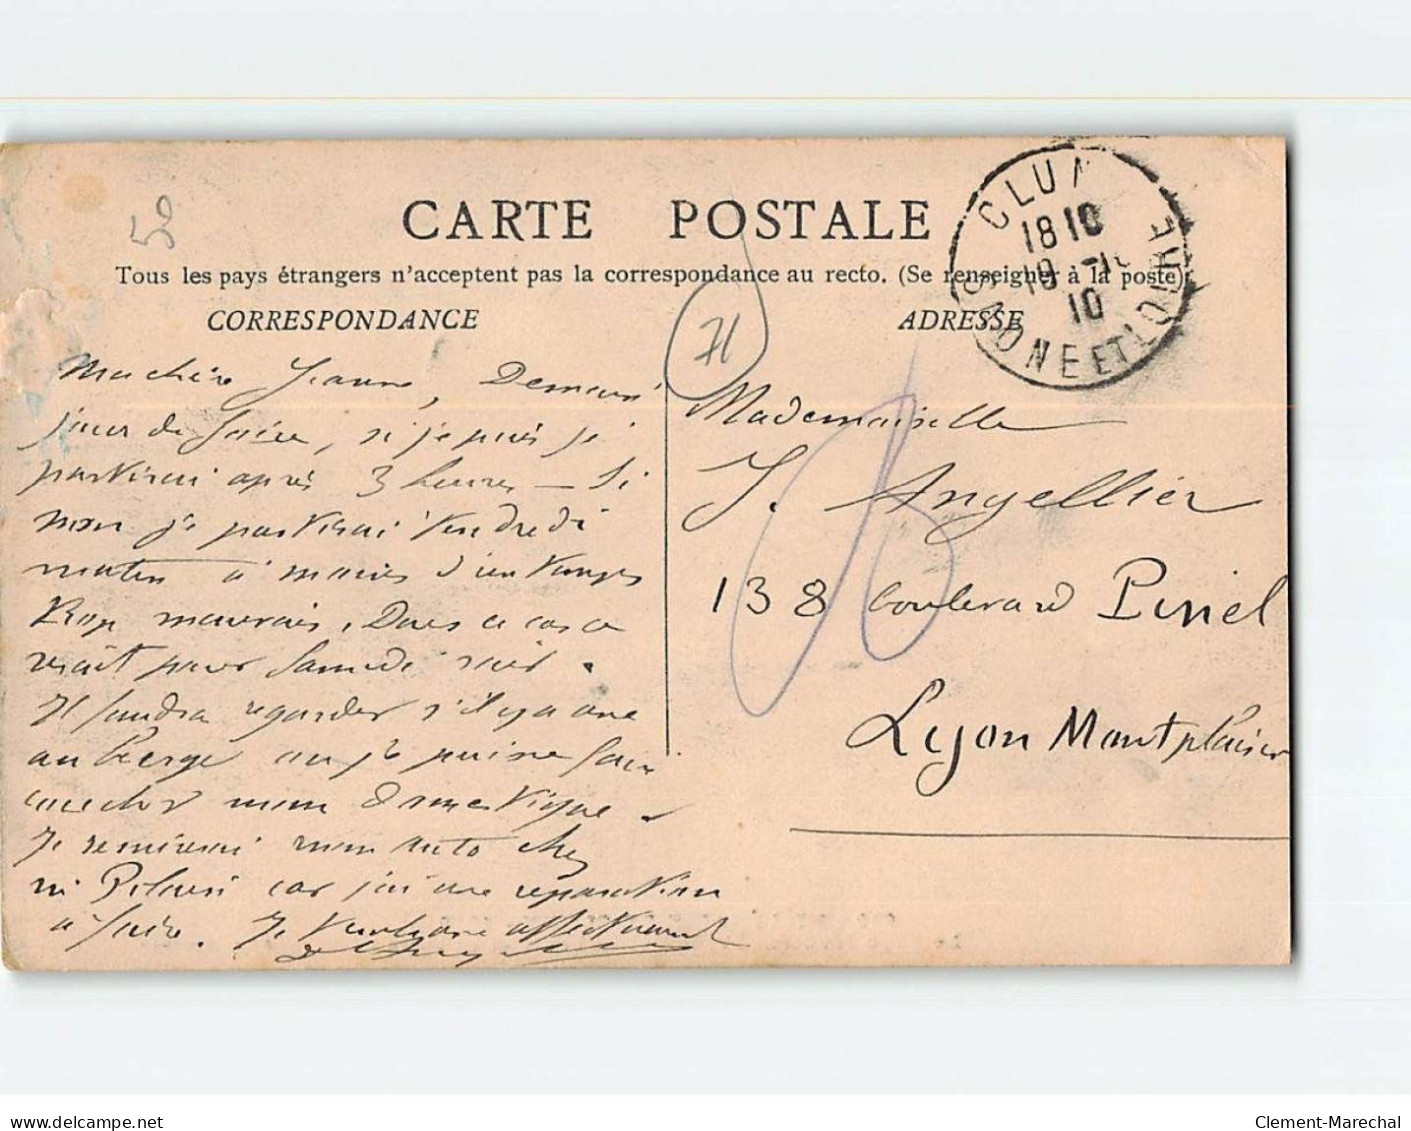 50
CARTE POSTALE
CLUN
18 10
19 -10
10
SAONE ET LOIRE
Tous les pays étrangers n'acceptent pas la correspondance au recto. (Se renseigner à la poste)
CORRESPONDANCE
ADRESSE
71
Ma chère Jeanne, Demain
jour de foire, si je puis je
partirai après 3 heures — Si
non je partirai Vendredi
matin à moins d'un temps
trop mauvais. Dans ce cas ce
serait pour Samedi soir.
Il faudra regarder s'il y a une
auberge ou je puisse faire
coucher mon domestique.
Je remiserai mon auto chez
car j'ai une réparation
à faire. Je t'embrasse affectueusement
Mademoiselle
J. Angellier
138 boulevard Pinel
Lyon Montplaisir
delcampe.net
Clement-Marechal